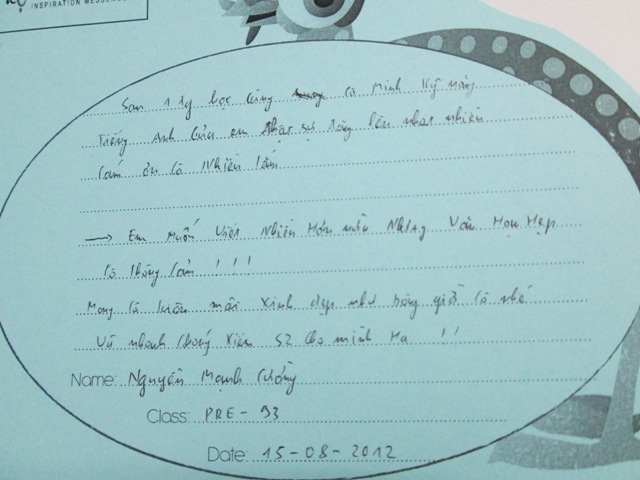 INSPIRATION MESSENGER
Sau 1 kỳ học cùng cô Minh kỹ năng
Tiếng Anh của em thật sự tăng lên nhiều
Cảm ơn cô nhiều lắm
→ Em muốn viết nhiều hơn nữa nhưng vốn hạn hẹp
cô thông cảm !!!
Mong cô luôn mãi xinh đẹp như bây giờ cô nhé
Và nhanh chóng kiếm cho mình !!
Name: Nguyễn Mạnh Cường
Class: PRE - 93
Date: 15-08-2012